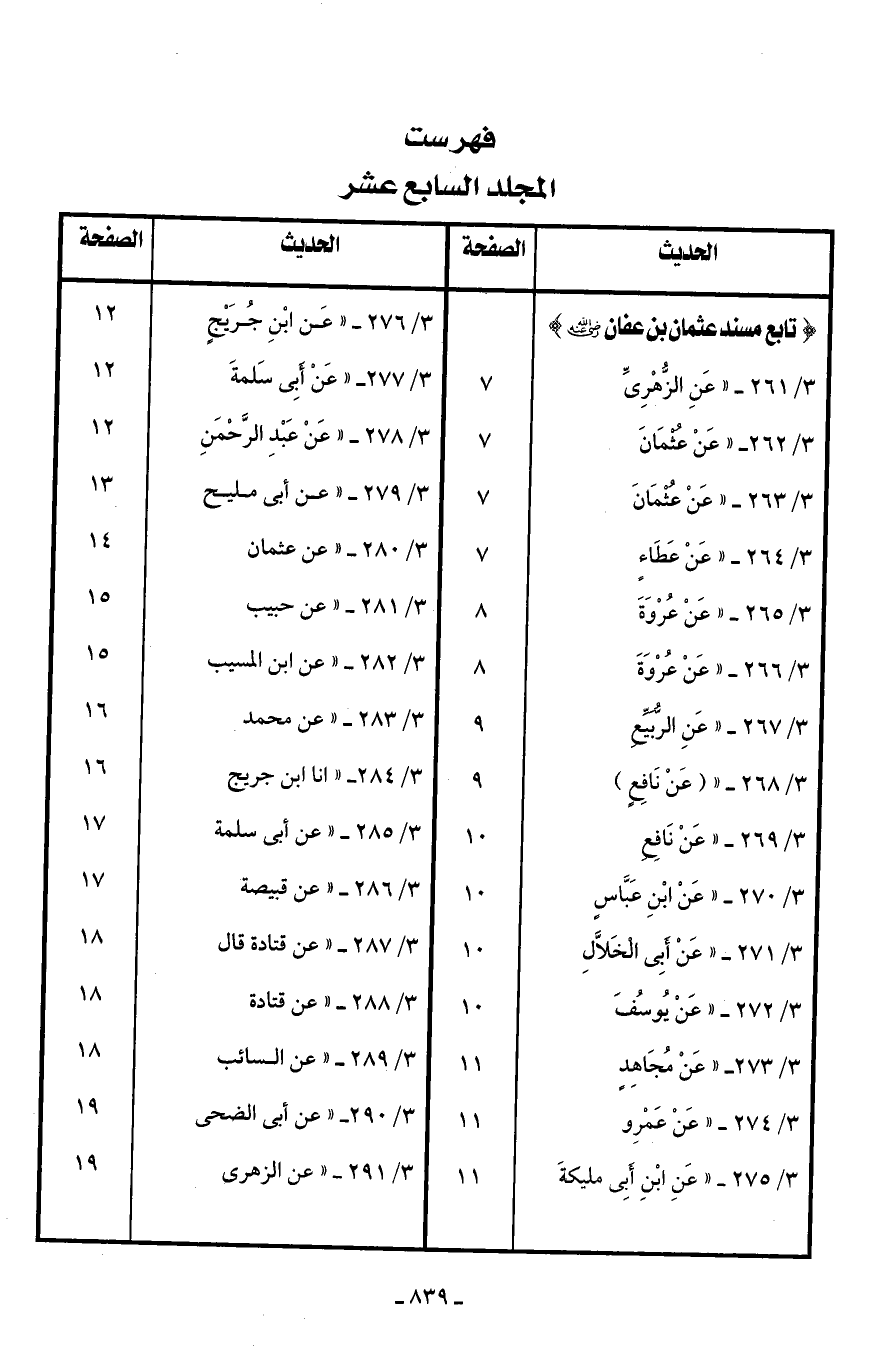 فهرست
المجلد السابع عشر
الحديث الصفحة
﴿ تابع مسند عثمان بن عفان رضي الله عنه ﴾
٣/ ٢٦١ ـ « عَنِ الزُّهْرِىِّ ٧
٣/ ٢٦٢ـ « عَنْ عُثْمَانَ ٧
٣/ ٢٦٣ ـ « عَنْ عُثْمَانَ ٧
٣/ ٢٦٤ ـ « عَنْ عَطَاءٍ ٧
٣/ ٢٦٥ ـ « عَنْ عُرْوَةَ ٨
٣/ ٢٦٦ ـ « عَنْ عُرْوَةَ ٨
٣/ ٢٦٧ ـ « عَنِ الرُّبَيِّعِ ٩
٣/ ٢٦٨ ـ « ( عَنْ نَافِعٍ ) ٩
٣/ ٢٦٩ ـ « عَنْ نَافِعٍ ١٠
٣/ ٢٧٠ ـ « عَنْ ابْنِ عَبَّاسٍ ١٠
٣/ ٢٧١ ـ « عَنْ أَبِى الْخَلاَّلِ ١٠
٣/ ٢٧٢ ـ « عَنْ يُوسُفَ ١٠
٣/ ٢٧٣ـ « عَنْ مُجَاهِدٍ ١١
٣/ ٢٧٤ ـ « عَنْ عَمْرِو ١١
٣/ ٢٧٥ ـ « عَنِ ابْنِ أَبِى مليكةَ ١١
الحديث الصفحة
٣/ ٢٧٦ ـ « عَـن ابْنِ جُـرَيْجٍ ١٢
٣/ ٢٧٧ـ « عَنْ أَبِى سَلَمةَ ١٢
٣/ ٢٧٨ ـ « عَنْ عَبْدِ الرَّحْمَنِ ١٢
٣/ ٢٧٩ ـ « عـن أبى مـليـح ١٣
٣/ ٢٨٠ ـ « عن عثمان ١٤
٣/ ٢٨١ ـ « عن حبيب ١٥
٣/ ٢٨٢ ـ « عن ابن المسيب ١٥
٣/ ٢٨٣ ـ « عن محمد ١٦
٣/ ٢٨٤ـ « انا ابن جريج ١٦
٣/ ٢٨٥ ـ « عن أبى سلمة ١٧
٣/ ٢٨٦ ـ « عن قبيصة ١٧
٣/ ٢٨٧ ـ « عن قتادة قال ١٨
٣/ ٢٨٨ ـ « عن قتادة ١٨
٣/ ٢٨٩ ـ « عن الـسائب ١٨
٣/ ٢٩٠ـ « عن أبى الضحى ١٩
٣/ ٢٩١ ـ « عن الزهرى ١٩
ـ ٨٣٩ ـ